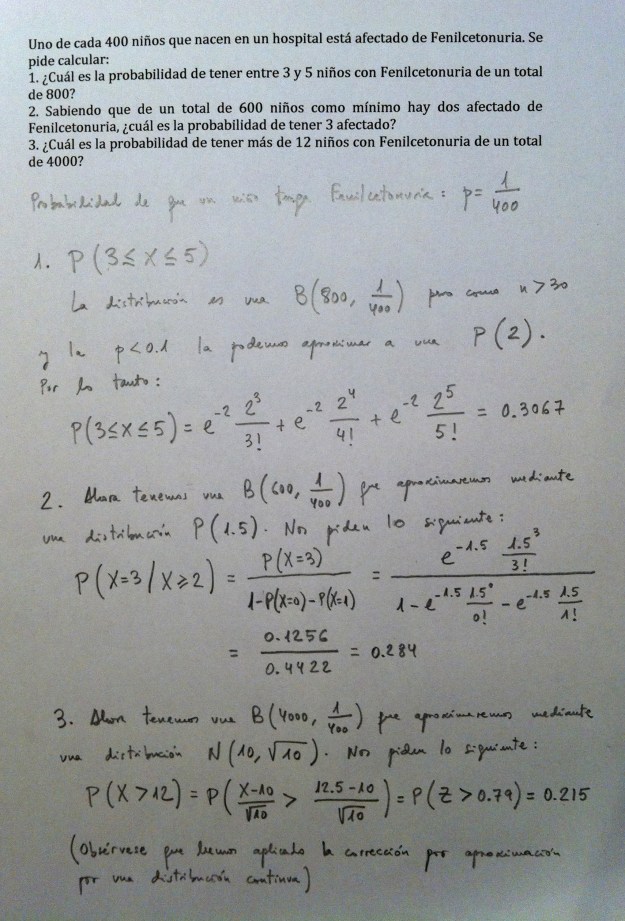 Uno de cada 400 niños que nacen en un hospital está afectado de Fenilcetonuria. Se
pide calcular:
1. ¿Cuál es la probabilidad de tener entre 3 y 5 niños con Fenilcetonuria de un total
de 800?
2. Sabiendo que de un total de 600 niños como mínimo hay dos afectado de
Fenilcetonuria, ¿cuál es la probabilidad de tener 3 afectado?
3. ¿Cuál es la probabilidad de tener más de 12 niños con Fenilcetonuria de un total
de 4000?
Probabilidad de que un niño tenga Fenilcetonuria : p = 1/400
1. P(3 ≤ X ≤ 5)
La distribución es una B(800, 1/400) pero como n > 30
y la p < 0.1 la podemos aproximar a una P(2).
Por lo tanto :
P(3 ≤ X ≤ 5) = e^-2 2^3/3! + e^-2 2^4/4! + e^-2 2^5/5! = 0.3067
2. Ahora tenemos una B(600, 1/400) que aproximaremos mediante
una distribución P(1.5). Nos piden lo siguiente :
P(X=3 / X ≥ 2) = P(X=3) / (1-P(X=0)-P(X=1)) = (e^-1.5 1.5^3/3!) / (1 - e^-1.5 1.5^0/0! - e^-1.5 1.5/1!)
= 0.1256/0.4422 = 0.284
3. Ahora tenemos una B(4000, 1/400) que aproximaremos mediante
una distribución N(10, √10). Nos piden lo siguiente :
P(X > 12) = P((X-10)/√10 > (12.5-10)/√10) = P(Z > 0.79) = 0.215
(Obsérvese que hemos aplicado la corrección por aproximación
por una distribución continua)